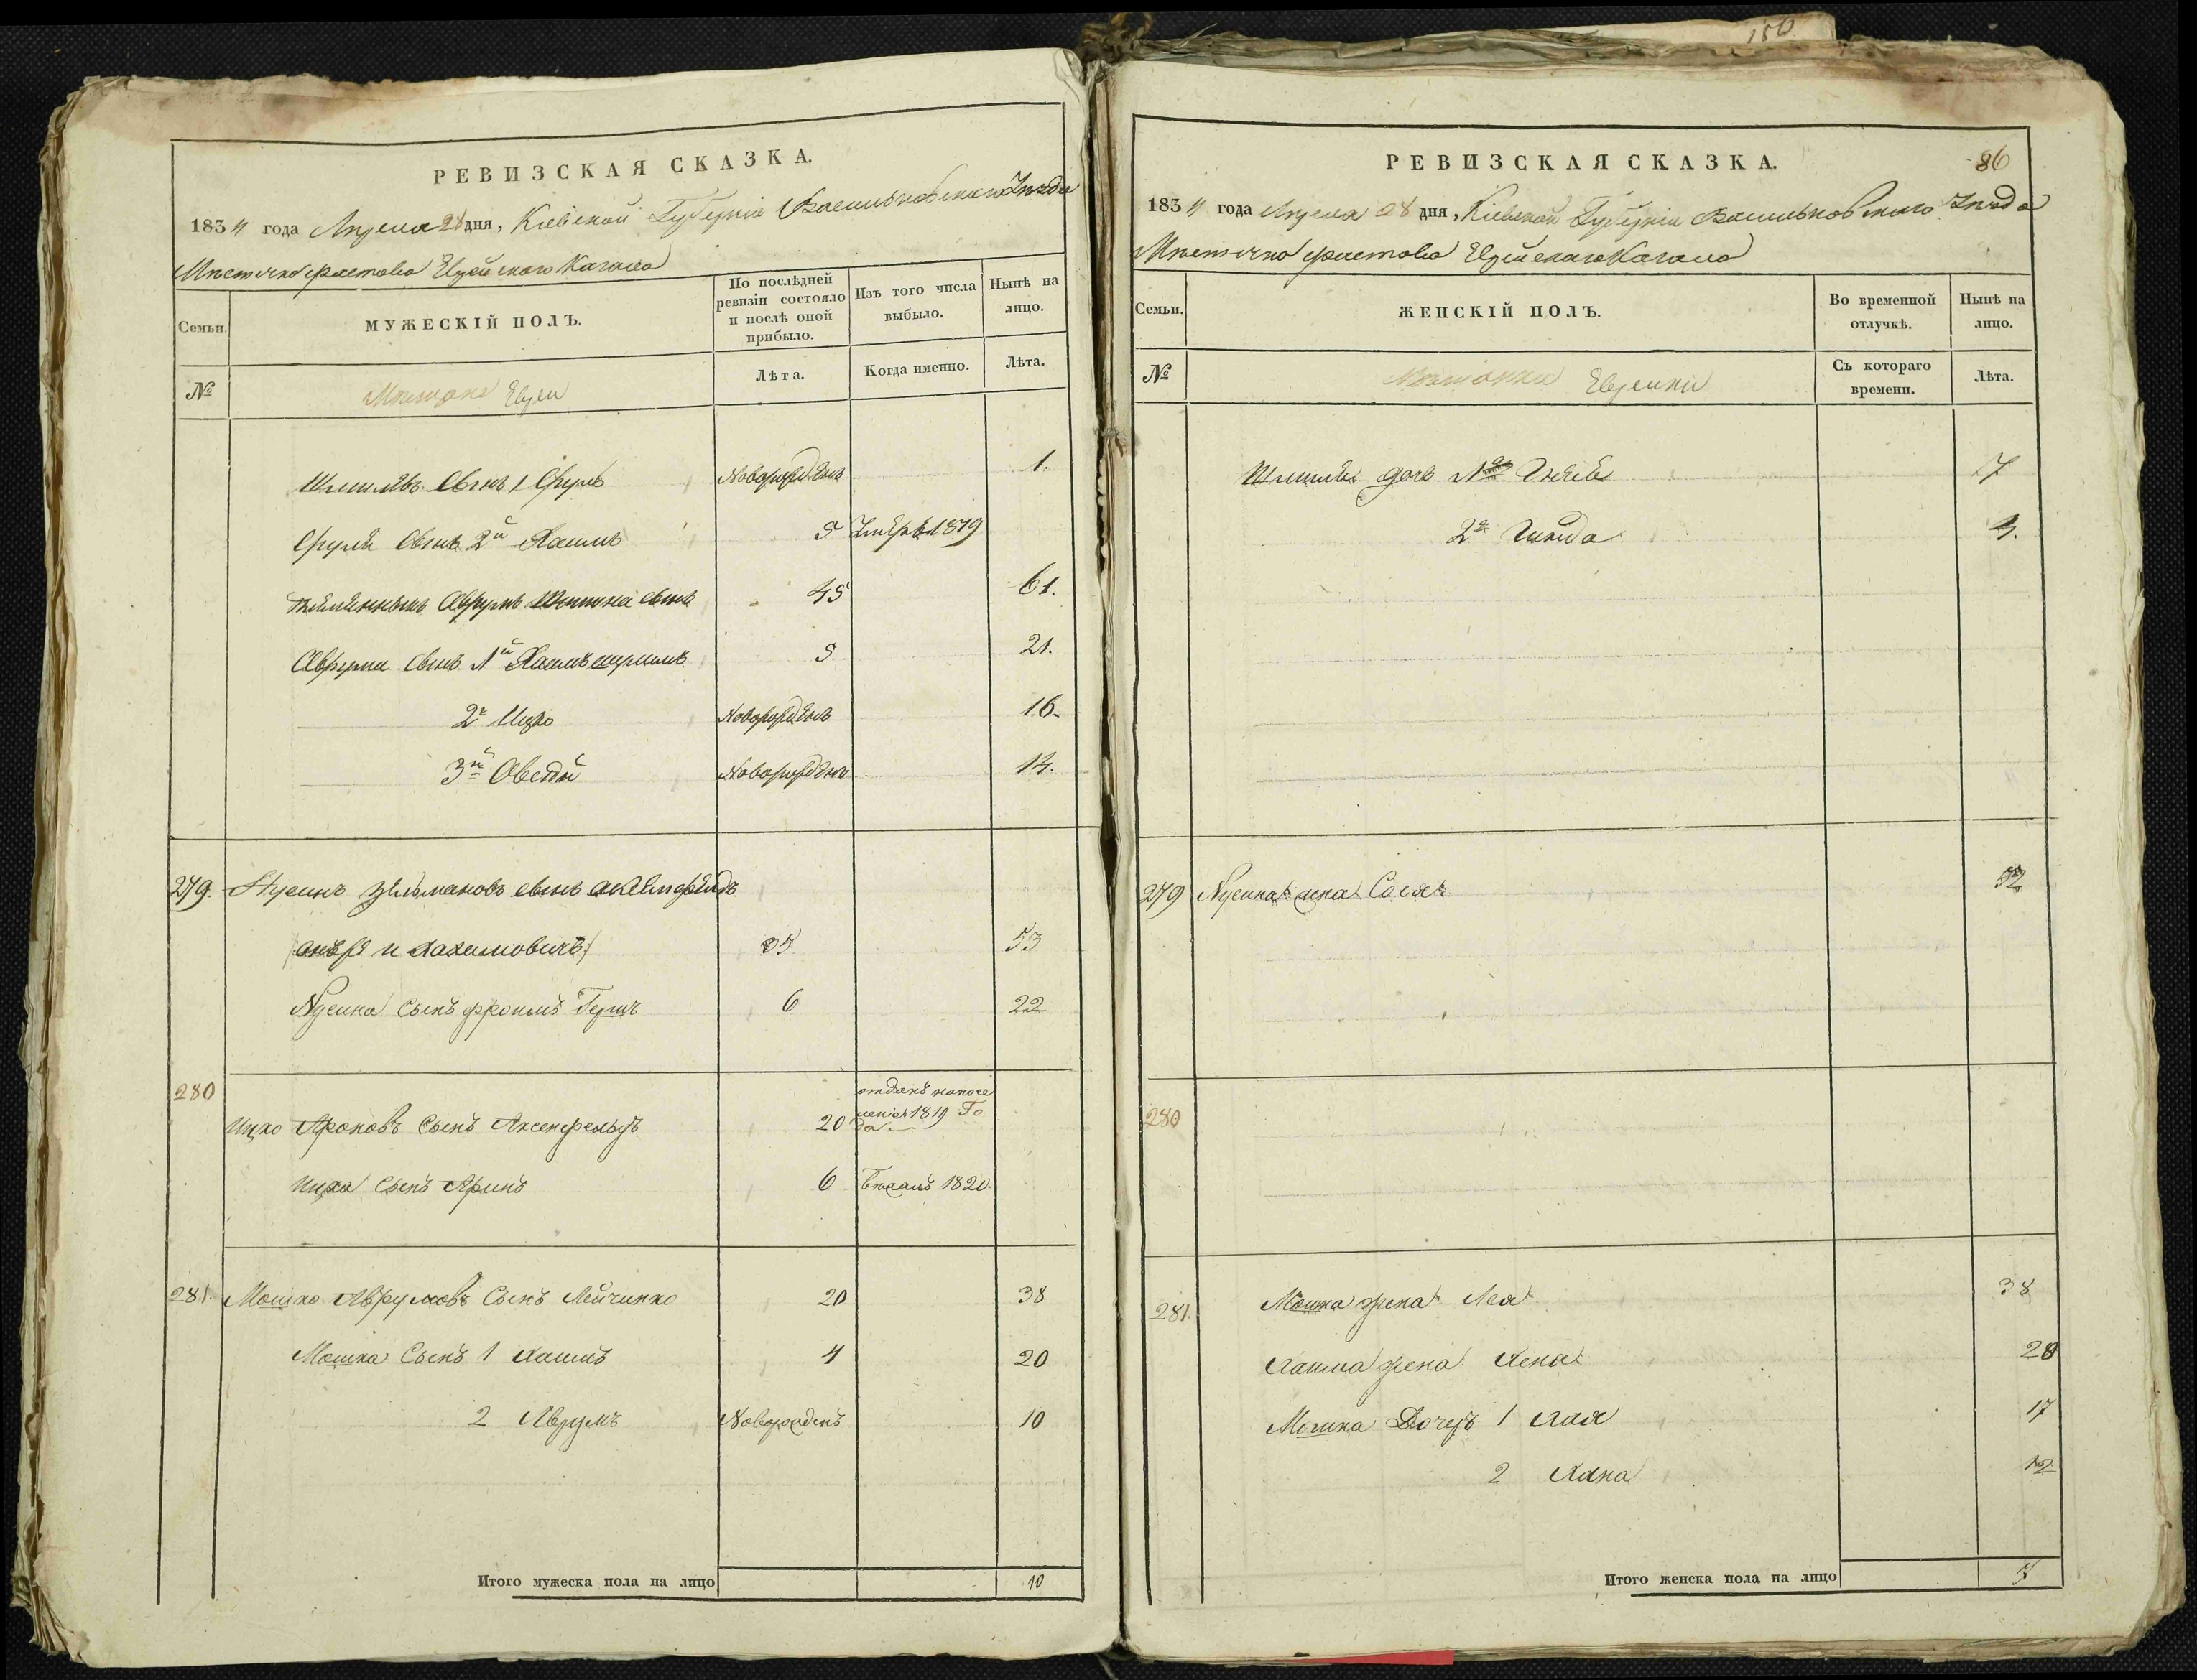 150
РЕВИЗСКАЯ СКАЗКА.
1834 года Апреля 28 дня, Кіевской Губерніи Васильковскаго Уезда
Местечка Фастова Еврейскаго Кагала
Семьи.
МУЖЕСКІЙ ПОЛЪ.
По послѣдней ревизіи состояло и послѣ оной прибыло.
Изъ того числа выбыло.
Нынѣ на лицо.
№
Мещане Евреи
Лѣта.
Когда именно.
Лѣта.
Шмилевъ Сынъ 1 Сруль Новорожденъ 1.
Сруля Сынъ 2й Хаимъ 5 Умеръ 1819
Аврумъ сынъ 45 61.
Аврума Сынъ 1й Хаимъ 5 21.
2й Ицко Новорожденъ 16.
3й Овсей Новорожденъ 14.
279. Нусинъ Зельмановъ сынъ
35 53
Нусина Сынъ Фроимъ Гершъ 6 22
280
Ицко Ароновъ Сынъ Аксенфельдъ 20 отданъ на поселеніе 1819 Года
Ицка Сынъ 6 Бежалъ 1820.
281. Мошко Аврумовъ Сынъ Лейчинко 20 38
Мошка Сынъ 1 Хаимъ 4 20
2 Аврумъ Новорожденъ 10
Итого мужеска пола на лицо 10
РЕВИЗСКАЯ СКАЗКА.
86
1834 года Апреля 28 дня, Кіевской Губерніи Васильковскаго Уезда
Местечка Фастова Еврейскаго Кагала
Семьи.
ЖЕНСКІЙ ПОЛЪ.
Во временной отлучкѣ.
Нынѣ на лицо.
№
Мещанки Еврейки
Съ котораго времени.
Лѣта.
Шмиля дочь 1я 7
2я 4.
279 Нусина жена Сося 52
280
281. Мошка жена Лея 38
Хаима жена Хена 20
Мошка Дочерь 1 Хая 17
2 Хана 12
Итого женска пола на лицо 7